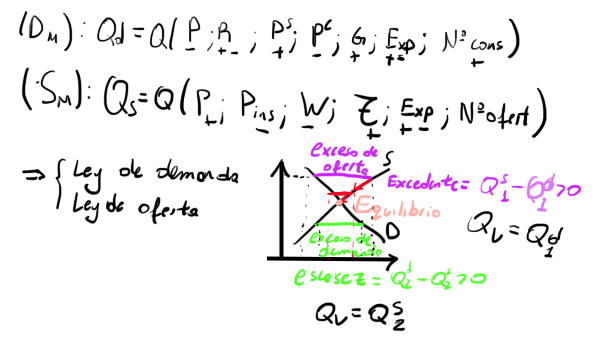 (D_M): Qd = Q( P ; R ; P^s ; P^c ; G ; Exp ; Nº cons )
- + - + - + + - +
(S_M): Qs = Q( P ; P_ins ; W ; Z ; Exp ; Nº ofert )
+ - - + + - +
⇒ { Ley de demanda
Ley de oferta
exceso de
oferta
S
Excedente = Q^s_1 - Q^d_1 > 0
Equilibrio
Q_v = Q^d_1
D
exceso de
demanda
escasez = Q^d_2 - Q^s_2 > 0
Q_v = Q^s_2